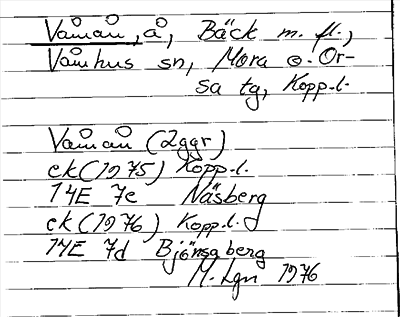 Våmån, å, Bäck m. fl.,
Våmhus sn, Mora o. Or-
sa tg, Kopp.l.
Våmån (2ggr)
ek (1975) Kopp.l.
14E 7c Näsberg
ek (1976) Kopp.l.
14E 7d Björnåberg
M. Lgn 1976